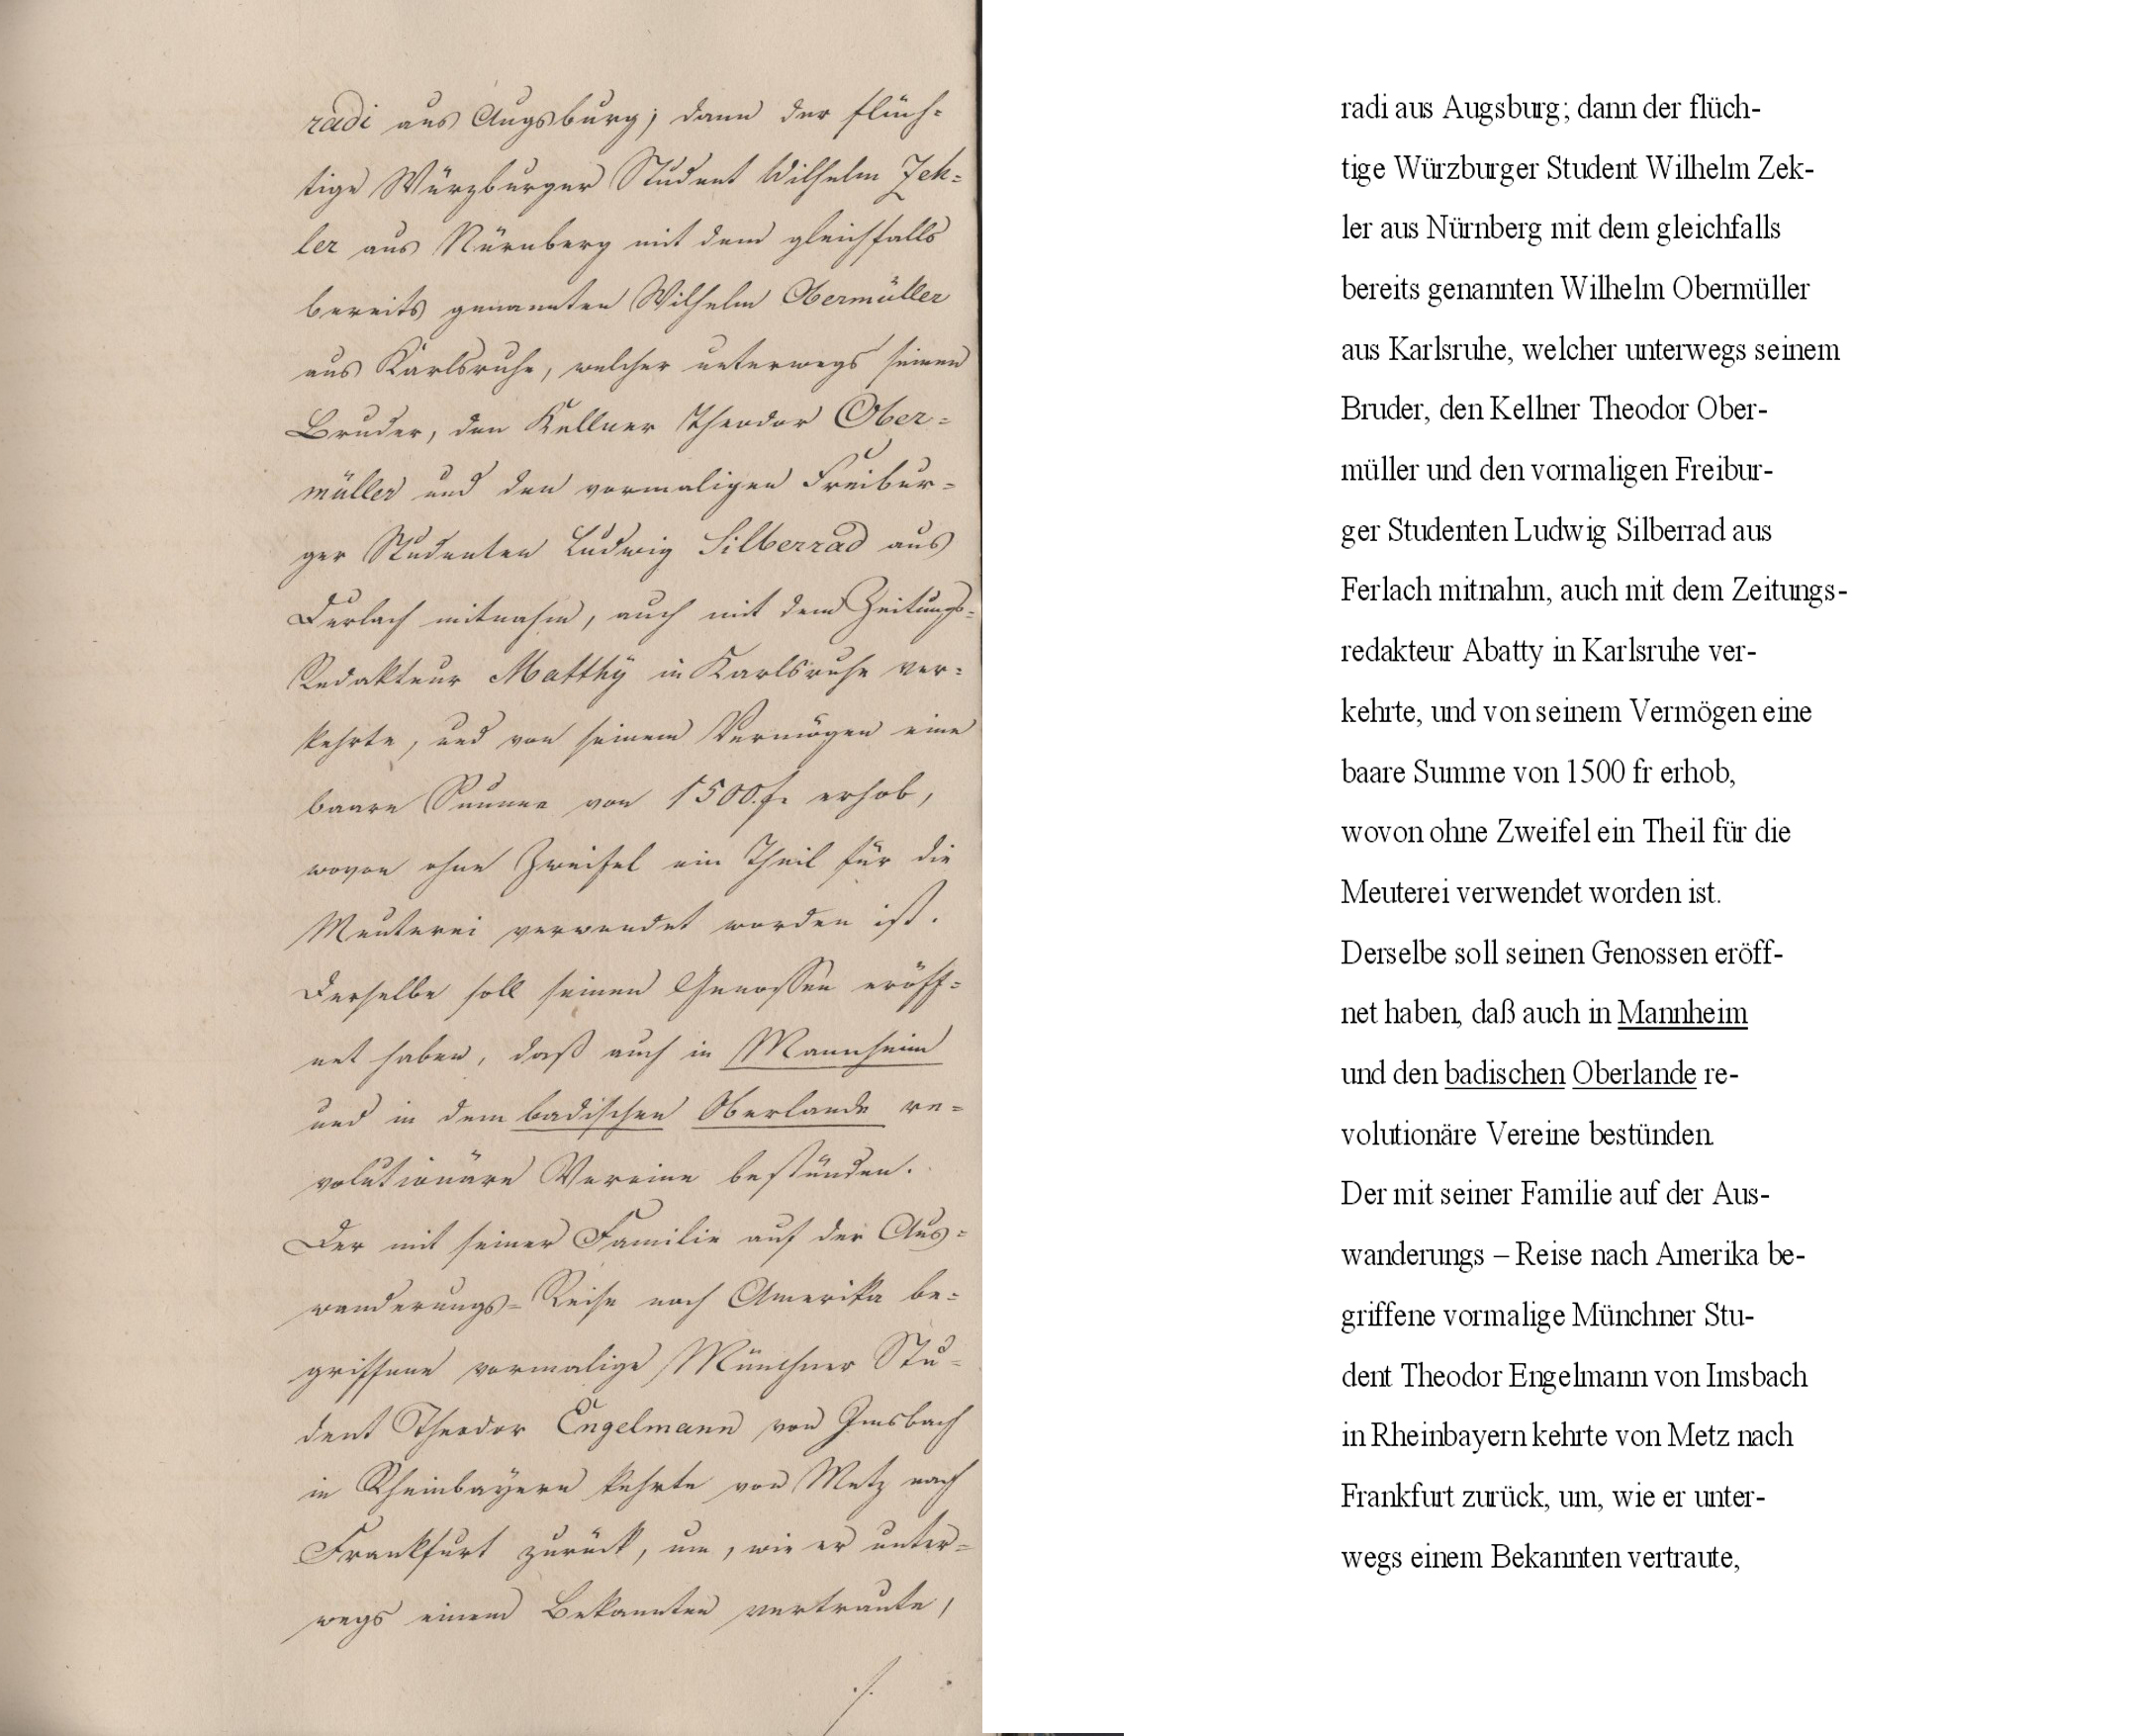 radi aus Augsburg; dann der flüch=
tige Würzburger Student Wilhelm Zek=
ler aus Nürnberg mit dem gleichfalls
bereits genannten Wilhelm Obermüller
aus Karlsruhe, welcher unterwegs seinen
Bruder, den Kellner Theodor Ober=
müller und den vormaligen Freibur=
ger Studenten Ludwig Silberrad aus
Durlach mitnahm, auch mit dem Zeitungs=
Redakteur Matthÿ in Karlsruhe ver=
kehrte, und von seinem Vermögen eine
baare Summe von 1500.f. erhob,
wovon ohne Zweifel ein Theil für die
Meuterei verwendet worden ist.
Derselbe soll seinen Genossen eröff=
net haben, daß auch in Mannheim
und in dem badischen Oberlande re=
volutionäre Vereine bestünden.
Der mit seiner Familie auf der Aus=
wanderungs=Reise nach Amerika be=
griffene vormalige Münchner Stu=
dent Theodor Engelmann von Imsbach
in Rheinbaÿern kehrte von Metz nach
Frankfurt zurück, um, wie er unter=
wegs einem Bekannten vertraute,
./.
radi aus Augsburg; dann der flüch-
tige Würzburger Student Wilhelm Zek-
ler aus Nürnberg mit dem gleichfalls
bereits genannten Wilhelm Obermüller
aus Karlsruhe, welcher unterwegs seinem
Bruder, den Kellner Theodor Ober-
müller und den vormaligen Freibur-
ger Studenten Ludwig Silberrad aus
Ferlach mitnahm, auch mit dem Zeitungs-
redakteur Abatty in Karlsruhe ver-
kehrte, und von seinem Vermögen eine
baare Summe von 1500 fr erhob,
wovon ohne Zweifel ein Theil für die
Meuterei verwendet worden ist.
Derselbe soll seinen Genossen eröff-
net haben, daß auch in Mannheim
und den badischen Oberlande re-
volutionäre Vereine bestünden.
Der mit seiner Familie auf der Aus-
wanderungs – Reise nach Amerika be-
griffene vormalige Münchner Stu-
dent Theodor Engelmann von Imsbach
in Rheinbayern kehrte von Metz nach
Frankfurt zurück, um, wie er unter-
wegs einem Bekannten vertraute,